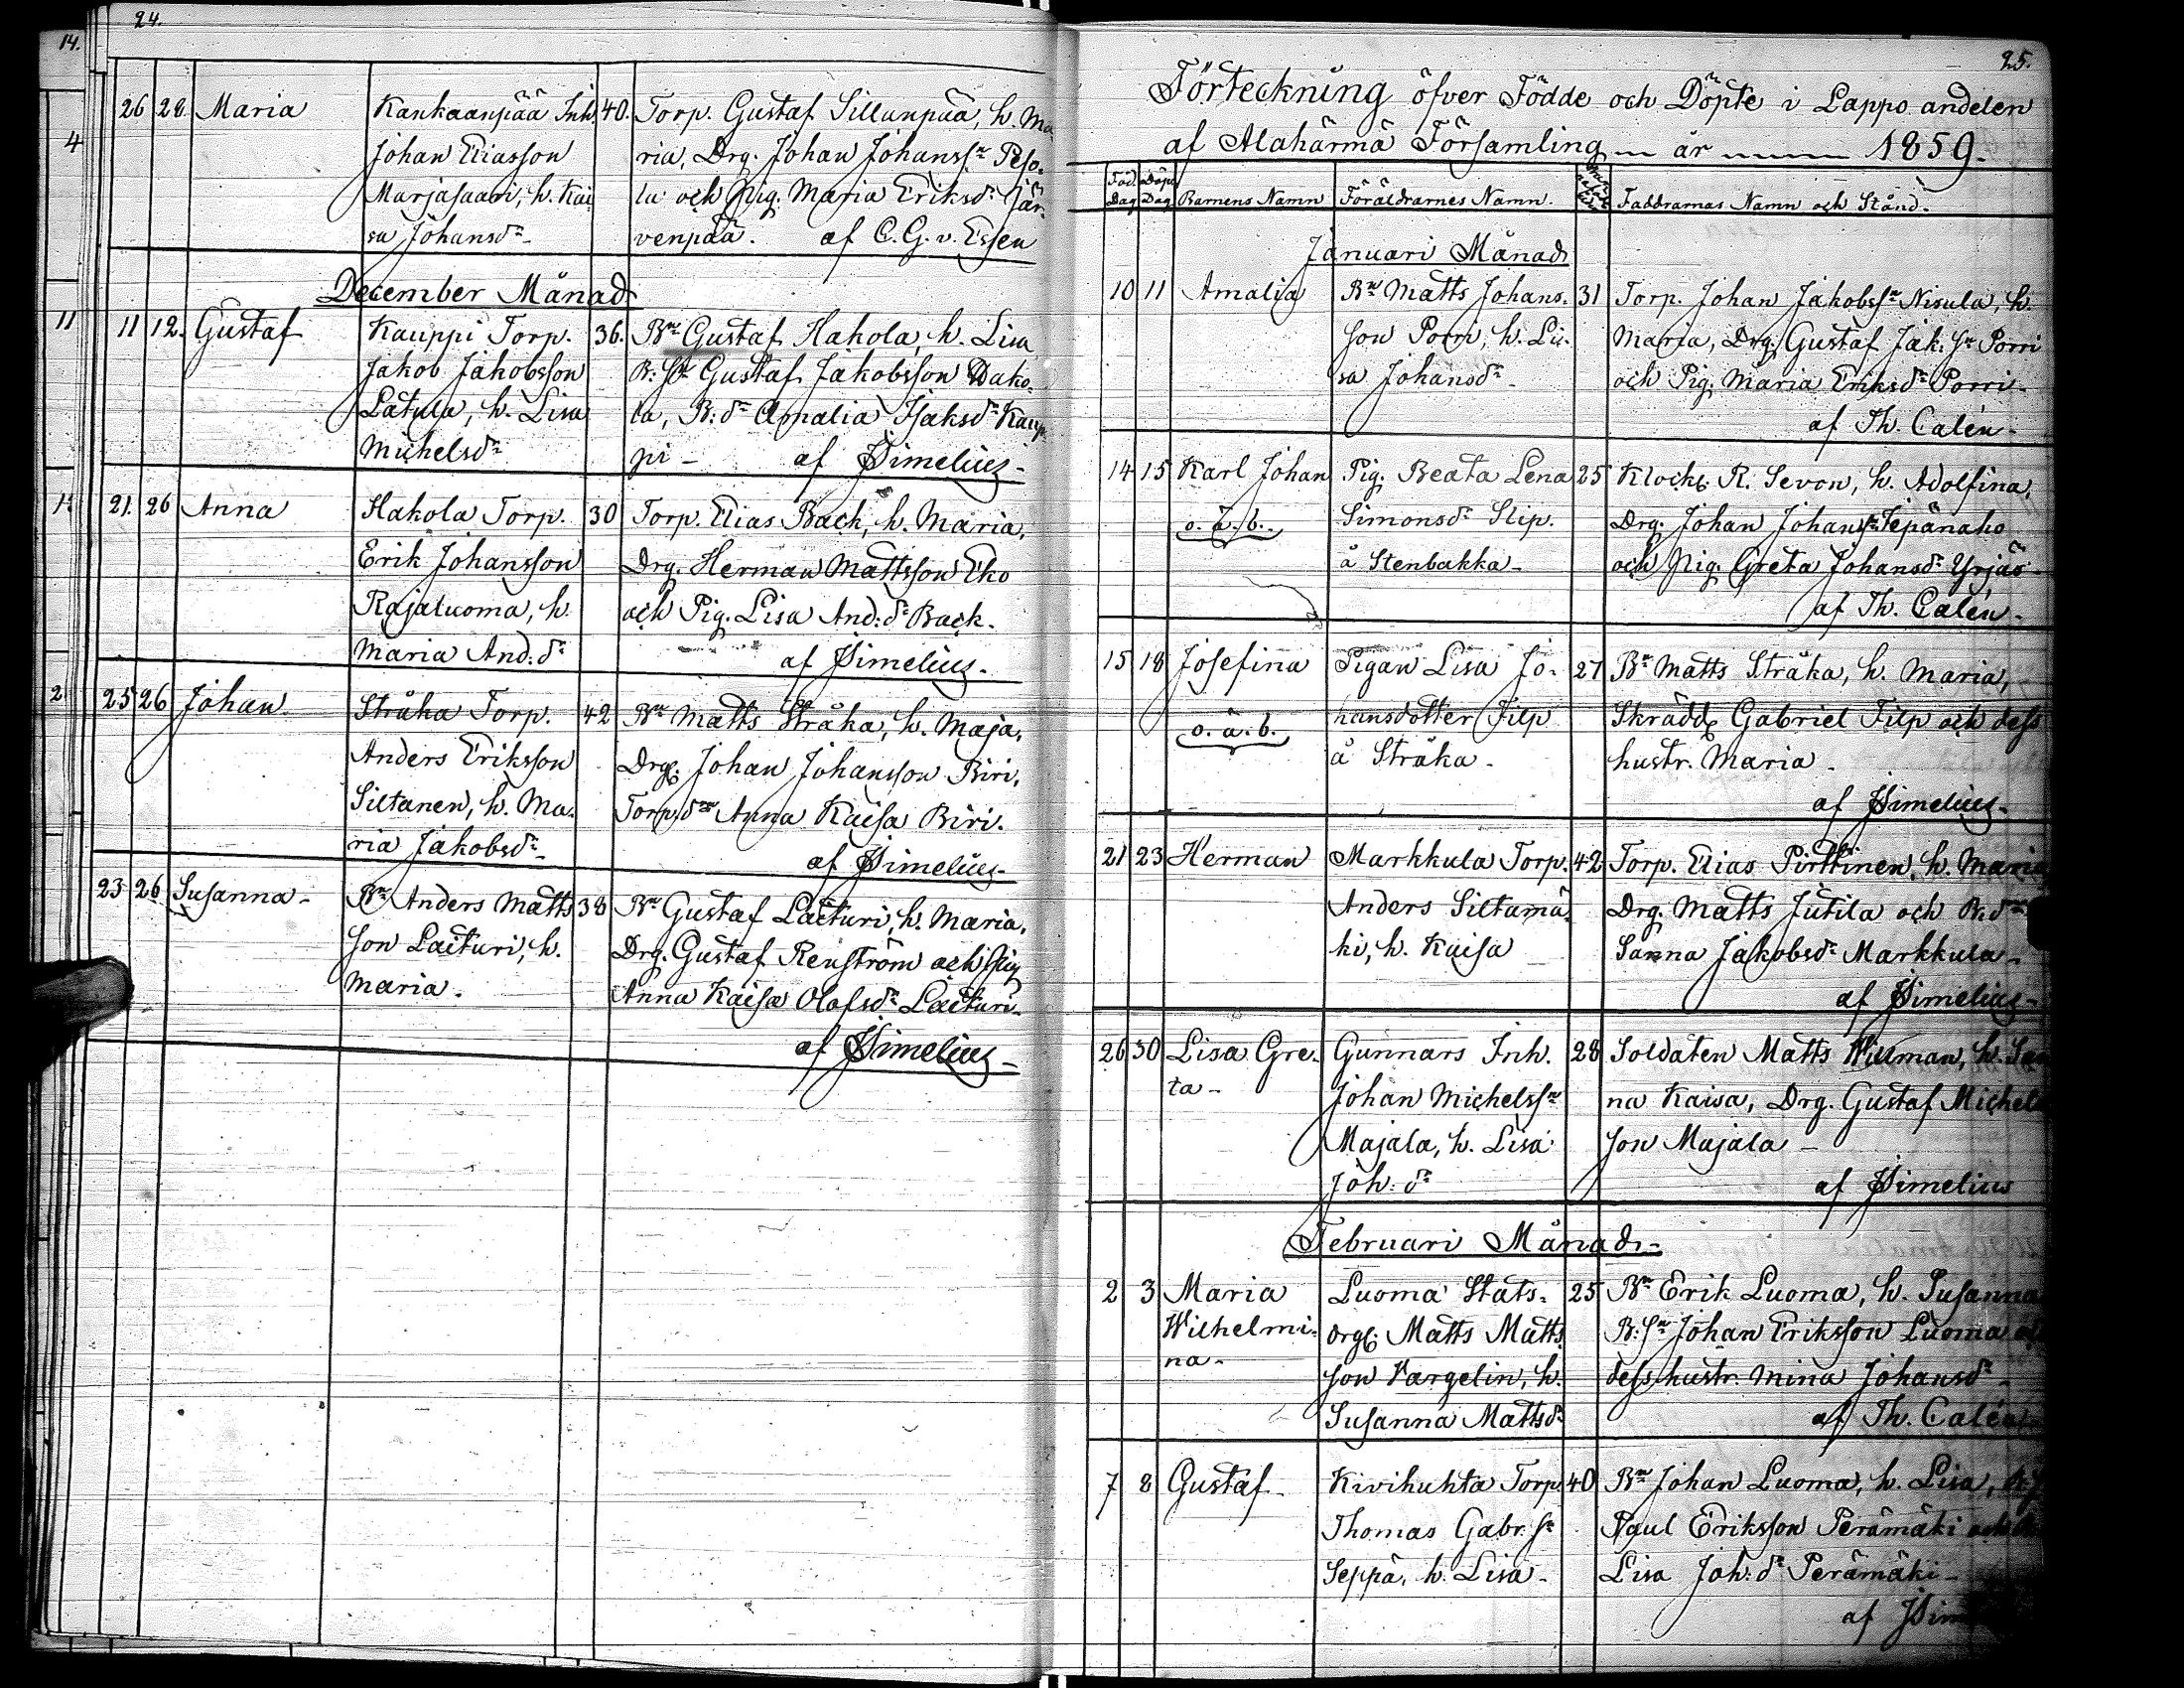 24.
14.
26 28. Maria Kankaanpää Inh. 40. Torp. Gustaf Sillanpää, h. Ma-
4 Johan Eliasson ria, Drg. Johan Johanss:n Peso-
Marjasaari, h. Kai- la och Pig. Maria Eriksd:r Jär-
sa Johansd:r venpää. af C. G. v. Essen
December Månad
11 11 12. Gustaf Kauppi Torp. 36. B:n Gustaf Hakola, h. Lisa
Jakob Jakobsson B: S:n Gustaf Jakobsson Hako-
Latula, h. Lisa la, B: d:r Amalia Isaksd:r Kaup-
Michelsd:r pi - af Simelius -
21. 26 Anna Hakola Torp. 30 Torp. Elias Back, h. Maria,
Erik Johansson Drg. Herman Mattsson Eko
Rajaluoma, h. och Pig. Lisa And: d:r Back.
Maria And: d:r af Simelius -
2 25 26 Johan Stråka Torp. 42 B:n Matts Stråka, h. Maja,
Anders Eriksson Drg. Johan Johansson Biri,
Siltanen, h. Ma- Torp. d:r Anna Kaisa Biri.
ria Jakobsd:r af Simelius -
23 26 Susanna - B:n Anders Matts- 38 B:n Gustaf Laituri, h. Maria,
son Laituri, h. Drg. Gustaf Renström och Pig.
Maria. Anna Kaisa Olofsd:r Laituri -
af Simelius -
25.
Förteckning öfver Födde och Döpte i Lappo andelen
af Alahärmä Församling år 1859.
Föd. Dag Döp. Dag Barnens Namn Föräldrarnes Namn. Faddrarnas Namn och Stånd.
Januari Månad
10 11 Amalia B:n Matts Johans- 31 Torp. Johan Jakobss:n Nisula, h.
son Porri, h. Li- Maria, Drg. Gustaf Jak: S:n Porri
sa Johansd:r - och Pig. Maria Eriksd:r Porri -
af Th. Calén -
14 15 Karl Johan Pig. Beata Lena 25 Klock. R. Sevon, h. Adolfina,
o. ä. b. Simonsd:r Slip. Drg. Johan Johanss:n Tepänaho
å Stenbakka - och Pig. Greta Johansd:r Yrjäs -
af Th. Calén -
15 18 Josefina Pigan Lisa Jo- 27 B:n Matts Stråka, h. Maria,
o. ä. b. hansdotter Filp Skrädd. Gabriel Filp och dess
å Stråka - hustr. Maria -
af Simelius -
21 23 Herman Markkula Torp. 42 Torp. Elias Pirttinen, h. Maria
Anders Siltamä- Drg. Matts Jutila och B: d:r
ki, h. Kaisa Sanna Jakobsd:r Markkula -
af Simelius -
26 30 Lisa Gre- Gunnars Inh. 28 Soldaten Matts Willman, h. San
ta - Johan Michelss:n na Kaisa, Drg. Gustaf Michels
Majala, h. Lisa son Majala -
Joh: d:r af Simelius
Februari Månad -
2 3 Maria Luoma Stats- 25 B:n Erik Luoma, h. Susanna
Wilhelmi- drg. Matts Matts- B: S:n Johan Eriksson Luoma
na - son Vargelin, h. dess hustr. Mina Johansd:r -
Susanna Mattsd:r af Th. Calén
7 8 Gustaf - Kivihuhta Torp. 40 B:n Johan Luoma, h. Lisa,
Thomas Gabr: S:n Paul Eriksson Perämäki och
Seppä, h. Lisa - Lisa Joh: d:r Perämäki -
af